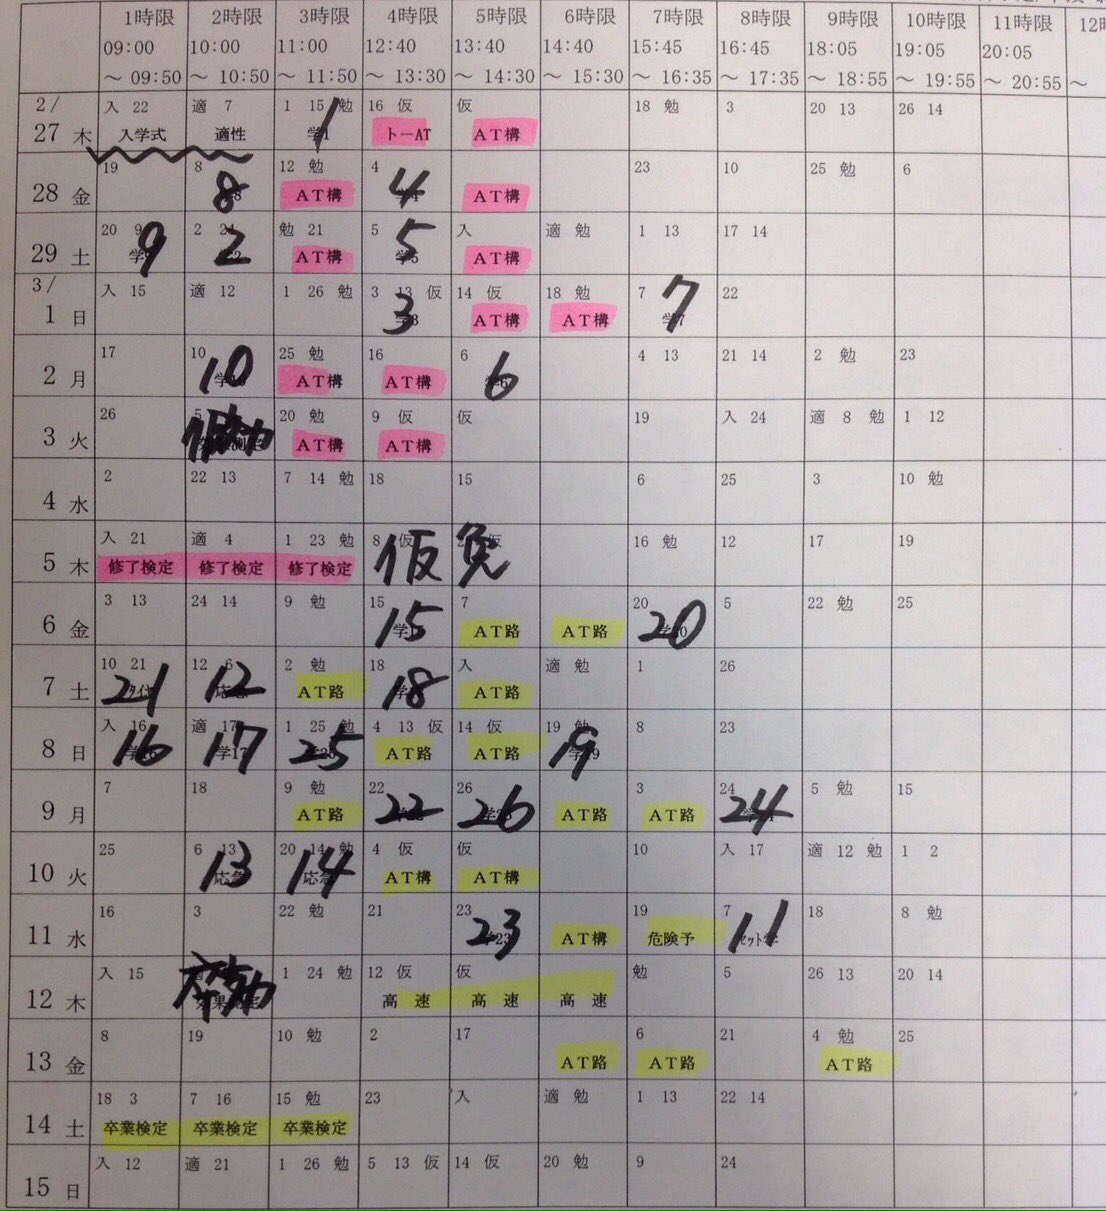 1時限 2時限 3時限 4時限 5時限 6時限 7時限 8時限 9時限 10時限 11時限
09:00 10:00 11:00 12:40 13:40 14:40 15:45 16:45 18:05 19:05 20:05
～ 09:50 ～ 10:50 ～ 11:50 ～ 13:30 ～ 14:30 ～ 15:30 ～ 16:35 ～ 17:35 ～ 18:55 ～ 19:55 ～ 20:55 ～
2/ 入 22 適 7 1 15 勉 16 仮 仮 18 勉 3 20 13 26 14
27 木 入学式 適性 1 トーAT AT構
19 8 12 勉 4 23 10 25 勉 6
28 金 8 AT構 4 AT構
20 9 2 24 勉 21 5 入 適 勉 1 13 17 14
29 土 9 2 AT構 5 AT構
3/ 入 15 適 12 1 26 勉 3 13 仮 14 仮 18 勉 7 22
1 日 3 AT構 AT構 7
17 10 25 勉 16 6 4 13 21 14 2 勉 23
2 月 10 AT構 AT構 6
26 5 20 勉 9 仮 仮 19 入 24 適 8 勉 1 12
3 火 仮効 AT構 AT構
2 22 13 7 14 勉 18 15 6 25 3 10 勉
4 水
入 21 適 4 1 23 勉 8 仮 仮 16 勉 12 17 19
5 木 修了検定 修了検定 修了検定 仮免
3 13 24 14 9 勉 15 7 20 5 22 勉 25
6 金 15 AT路 AT路 20
10 21 12 6 2 勉 18 入 適 勉 1 26
7 土 21 12 AT路 18 AT路
入 16 適 17 1 25 勉 4 13 仮 14 仮 19 勉 8 23
8 日 16 17 25 AT路 AT路 19
7 18 9 勉 22 26 3 24 5 勉 15
9 月 AT路 22 26 AT路 AT路 24
25 6 13 20 14 勉 4 仮 仮 10 入 17 適 12 勉 1 2
10 火 13 14 AT構 AT構
16 3 22 勉 21 23 19 7 18 8 勉
11 水 23 AT構 危険予 11
入 15 適 1 24 勉 12 仮 仮 勉 5 26 13 20 14
12 木 卒効 高速 高速 高速
8 19 10 勉 2 17 6 21 4 勉 25
13 金 AT路 AT路 AT路
18 3 7 16 15 勉 23 入 適 勉 1 13 22 14
14 土 卒業検定 卒業検定 卒業検定
入 12 適 21 1 26 勉 5 13 仮 14 仮 20 勉 9 24
15 日